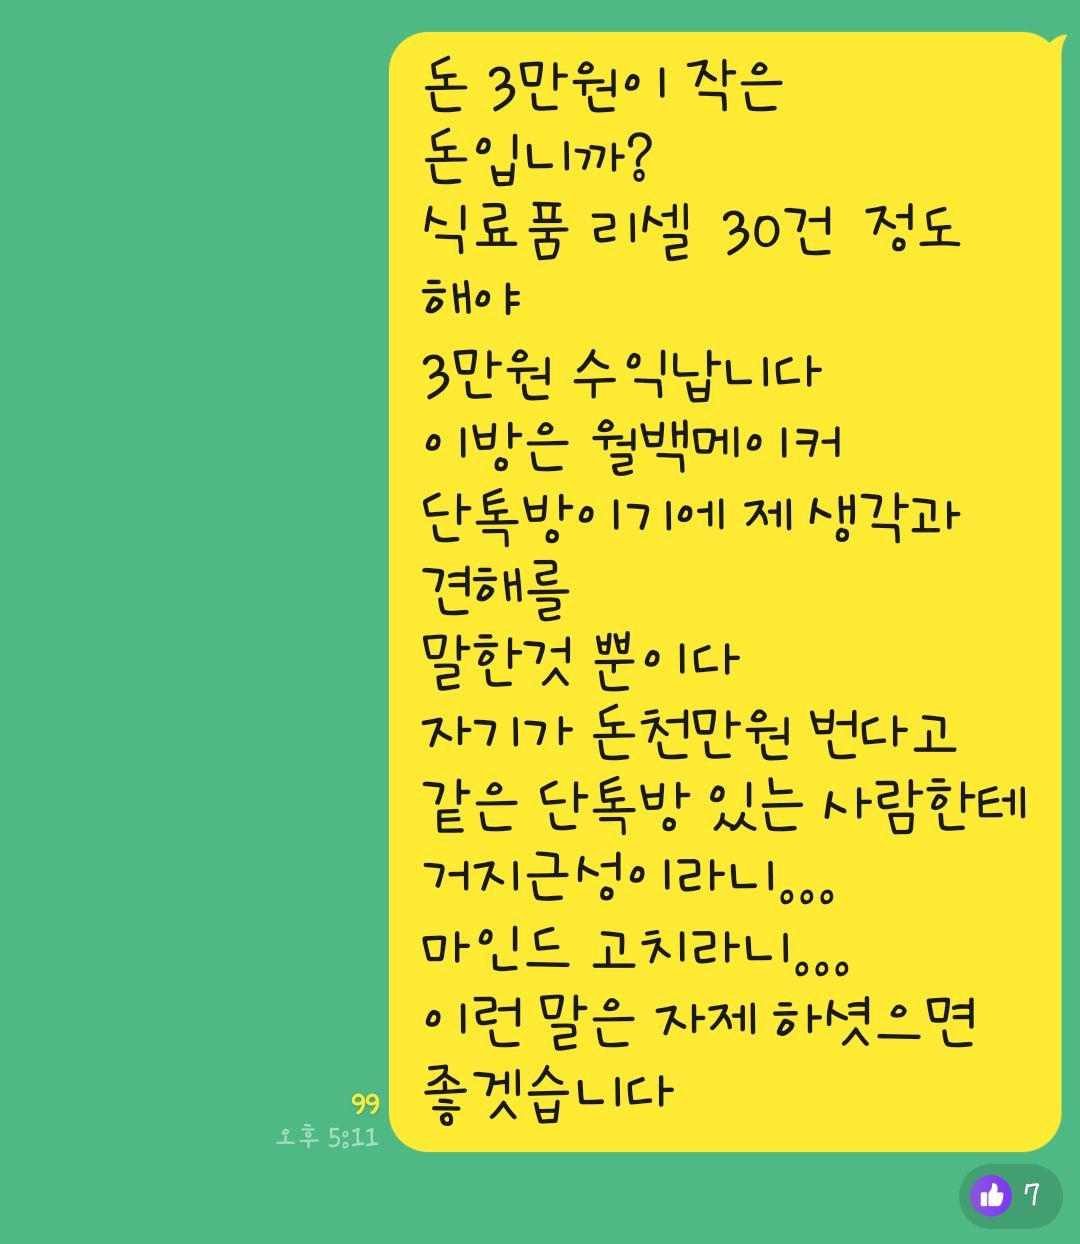 돈 3만원이 작은
돈입니까?
식료품 리셀 30건 정도
해야
3만원 수익납니다
이방은 월백메이커
단톡방이기에 제 생각과
견해를
말한것 뿐이다
자기가 돈천만원 번다고
같은 단톡방 있는 사람한테
거지근성이라니...
마인드 고치라니...
이런 말은 자제 하셧으면
좋겟습니다
99
오후 5:11
7